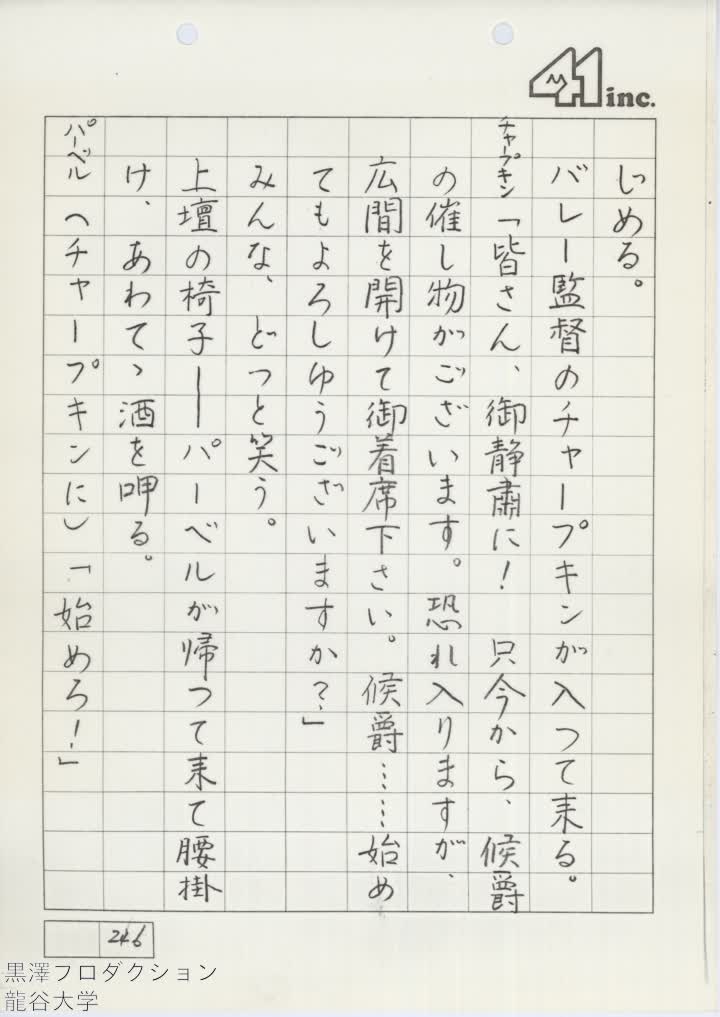 41 inc.
じめる。
バレー監督のチャープキンが入つて来る。
チャープキン「皆さん、御静粛に! 只今から、候爵
の催し物がございます。恐れ入りますが、
広間を開けて御着席下さい。候爵……始め
てもよろしゆうございますか?」
みんな、どつと笑う。
上壇の椅子——パーベルが帰つて来て腰掛
け、あわてゝ酒を呷る。
パーベル(チャープキンに)「始めろ!」
246
黒澤プロダクション
龍谷大学